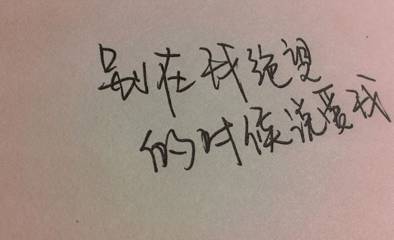 别在我绝望
的时候说爱我